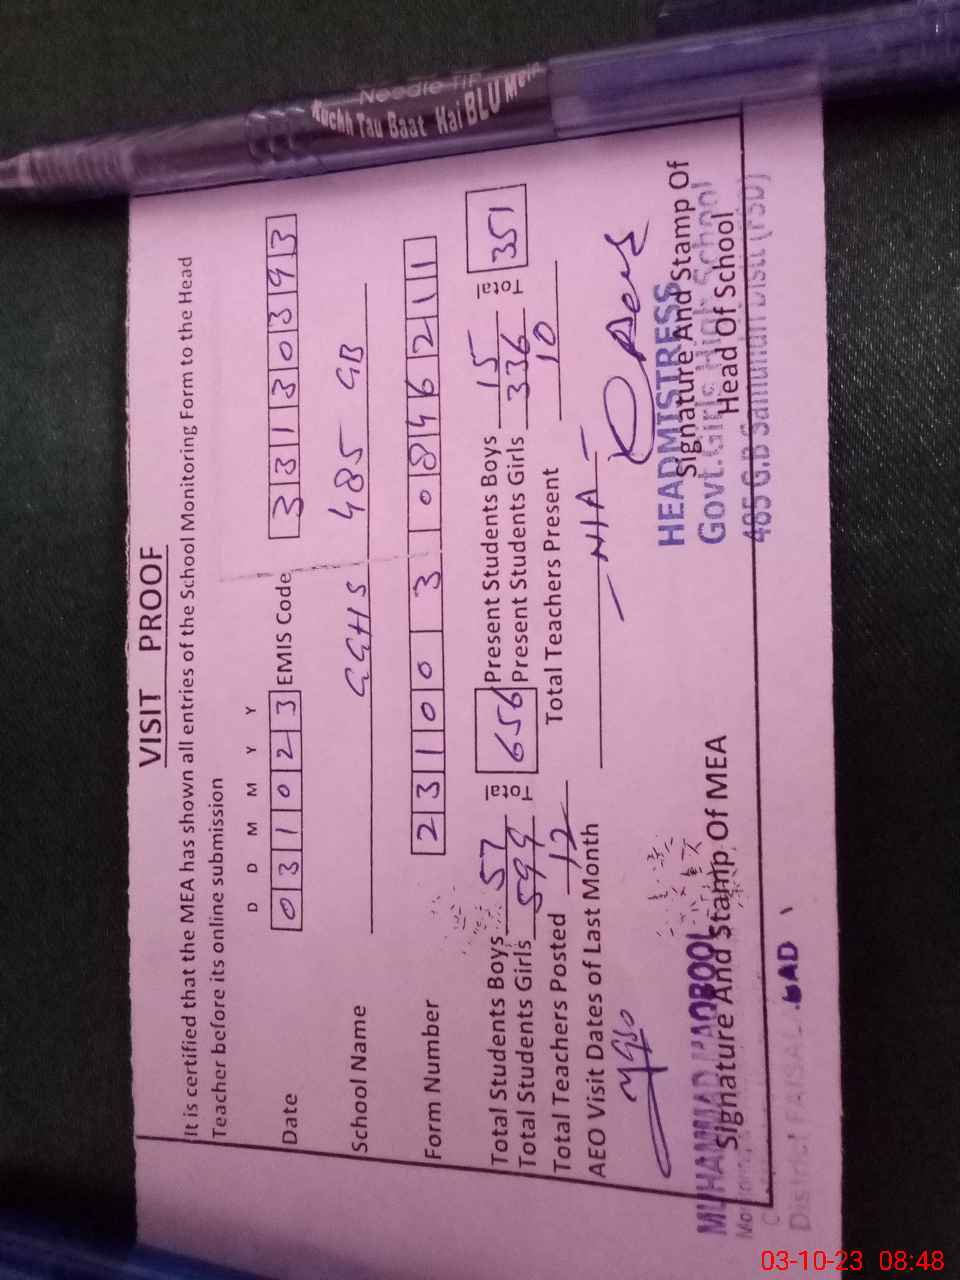 Needle TiP
Kuchh Tau Baat Hai BLU Mein
VISIT PROOF
It is certified that the MEA has shown all entries of the School Monitoring Form to the Head
Teacher before its online submission
D D M M Y Y
Date 0 3 1 0 2 3 EMIS Code 3 3 1 3 0 3 9 3
School Name GGHS 485 GB
Form Number 2 3 1 0 0 3 0 8 4 6 2 1 1
Total Students Boys 57 Total 656 Present Students Boys 15 Total 351
Total Students Girls 599 Present Students Girls 336
Total Teachers Posted 12 Total Teachers Present 10
AEO Visit Dates of Last Month - N I A -
MUHAMMAD MAQBOOL
Signature And Stamp Of MEA
District FAISALABAD
HEADMISTRESS
Signature And Stamp Of
Govt. Girls High School
Head Of School
485 G.B Samundri Distt (FSD)
03-10-23 08:48